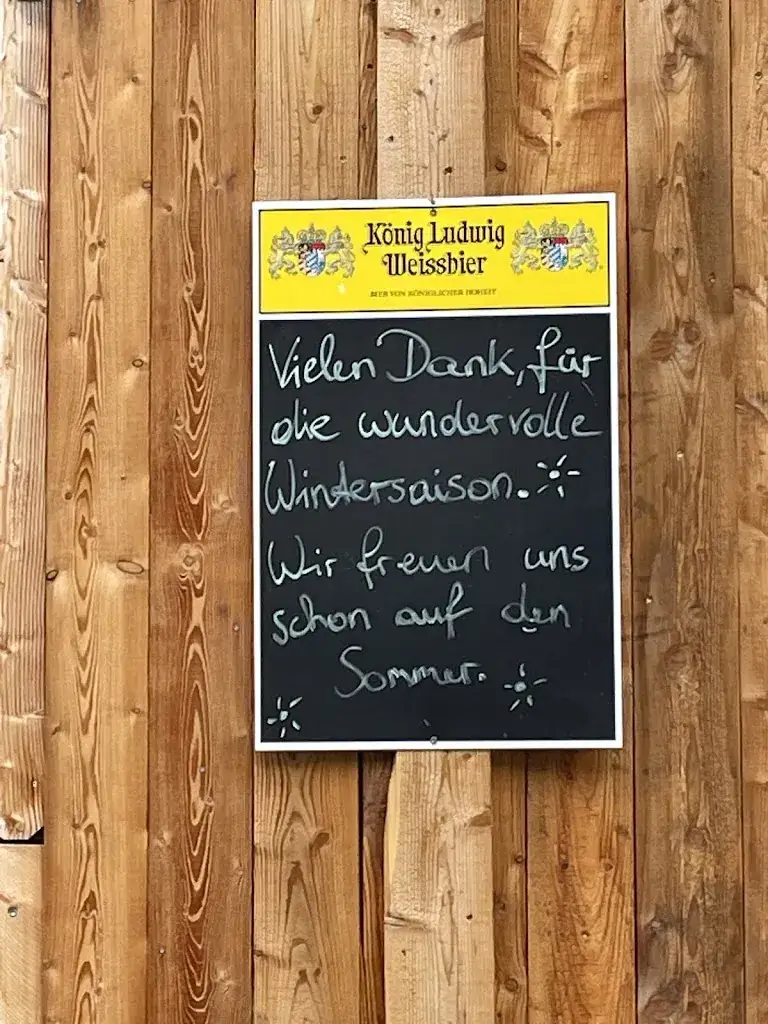 König Ludwig
Weissbier
BIER VON KÖNIGLICHER HOHEIT
Vielen Dank, für
die wundervolle
Wintersaison.
Wir freuen uns
schon auf den
Sommer.